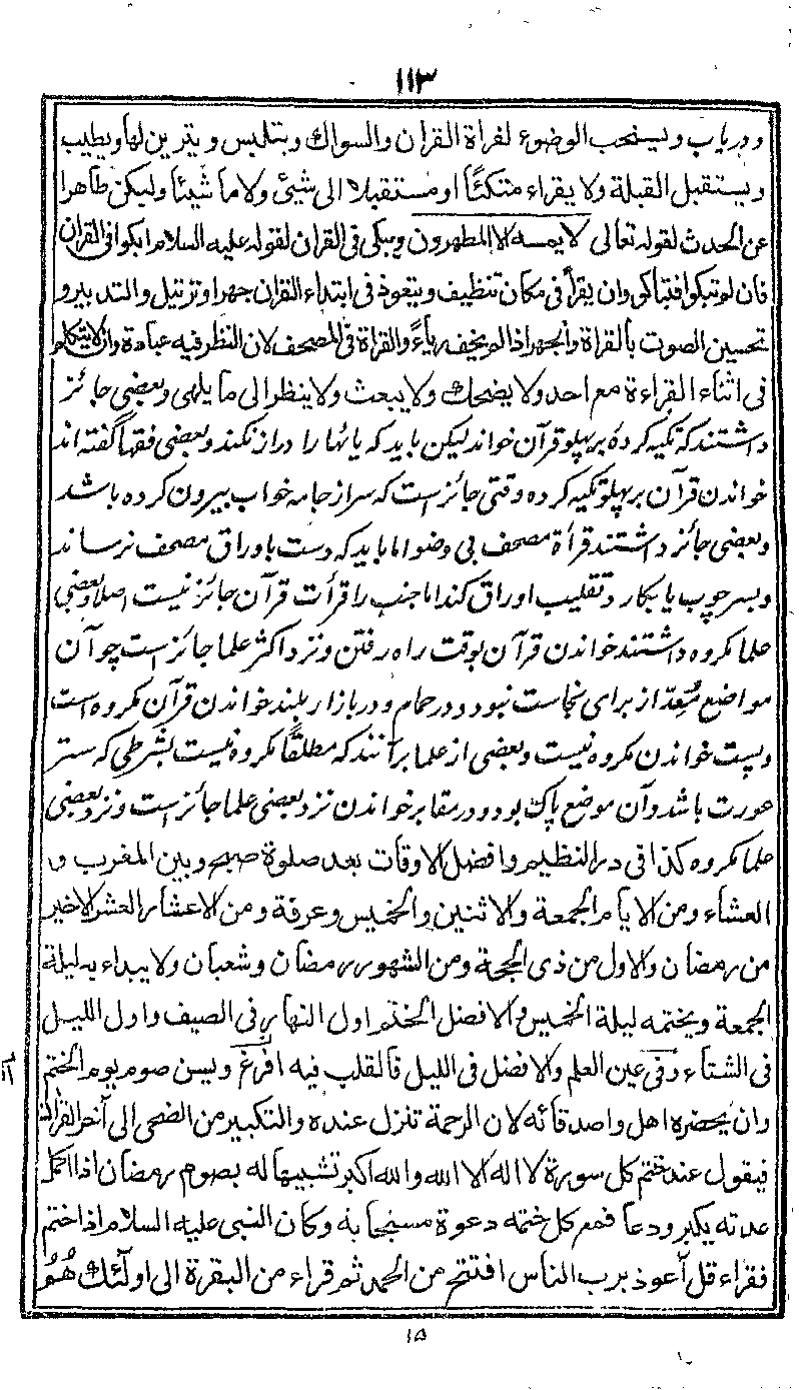 ۱۱۳
ودریاب ویستحب الوضوء لقراة القران والسواك وبتلبس ویتزین لها ویطیب
ویستقبل القبلة ولا یقراء متكئًا او مستقبلا الی شیئ ولا ماشیئا ولیكن طاهرا
عن الحدث لقوله تعالی لا یمسه الا المطهرون ویبكی فی القران لقوله علیه السلام ابكوا فی القران
فان لم تبكوا فتباكو وان یقرأ فی مكان تنظیف ویتعوذ فی ابتداء القران جهرا وترتیل والتدبیر و
تحسین الصوت بالقراة والجهر اذا لم یخفه ریاءً والقراة فی المصحف لان النظر فیه عبادة وان لا یتكلم
فی اثناء القراءة مع احد ولا یضحك ولا یبعث ولا ینظر الی ما یلهی وبعضی جائز
داشتند که تکیه کرده بر پهلو قرآن خواند لیکن باید که پائها را دراز نکند وبعضی فقها گفته اند
خواندن قرآن بر پهلو تکیه کرده وقتی جائز است که سر از جامه خواب بیرون کرده باشد
وبعضی جائز داشتند قرأة مصحف بی وضو اما باید که دست باوراق مصحف نرساند
وبسر چوب یا بکارد تقلیب اوراق کند اما جنب را قرأت قرآن جائز نیست اصلا وبعضی
علما مکروه داشتند خواندن قرآن بوقت راه رفتن ونزد اکثر علما جائز است چو آن
مواضع مُعِدّ از برای نجاست نبود ودر حمام ودر بازار بلند خواندن قرآن مکروه است
وپست خواندن مکروه نیست وبعضی از علما برانند که مطلقًا مکروه نیست بشرطی که ستر
عورت باشد وآن موضع پاک بود ودر مقابر خواندن نزد بعضی علما جائز است ونزد بعضی
علما مکروه کذا فی در النظیم وافضل الاوقات بعد صلوة صبح وبین المغرب و
العشاء ومن الایام الجمعة والاثنین والخمیس وعرفة ومن الاعشار العشر الاخیر
من رمضان والاول من ذی الحجة ومن الشهور رمضان وشعبان ولا یبداء به لیلة
الجمعة ویختمه لیلة الخمیس والافضل الختم اول النهار فی الصیف واول اللیل
فی الشتاء وفی عین العلم والافضل فی اللیل فالقلب فیه افرغ ویسن صوم یوم الختم
وان یحضره اهل واصدقائه لان الرحمة تنزل عنده والتكبیر من الضحی الی آخر القران
فیقول عند ختم كل سورة لا اله الا الله والله اكبر تشبیها له بصوم رمضان اذا اكمل
عدته یكبر ودعا فهم كل ختمه دعوة مستجابة وكان النبی علیه السلام اذا ختم
فقراء قل آعوذ برب الناس افتتح من الحمد ثم قراء من البقرة الی اولٓئك هُمُ
۱۵